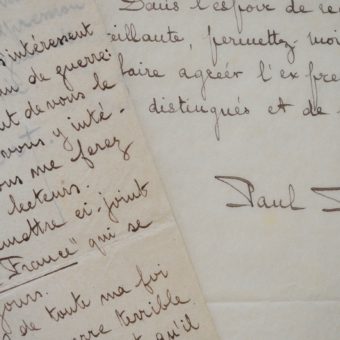 s intéressent
de guerre:
de vous le
vous y inté-
ous me ferez
lecteurs.
mettre ci-joint
France" qui se
jours.
de toute ma foi
erre terrible
qu'il
Dans l'espoir de
eillante, permettez moi
faire agréer l'ex
distingués et de
Paul